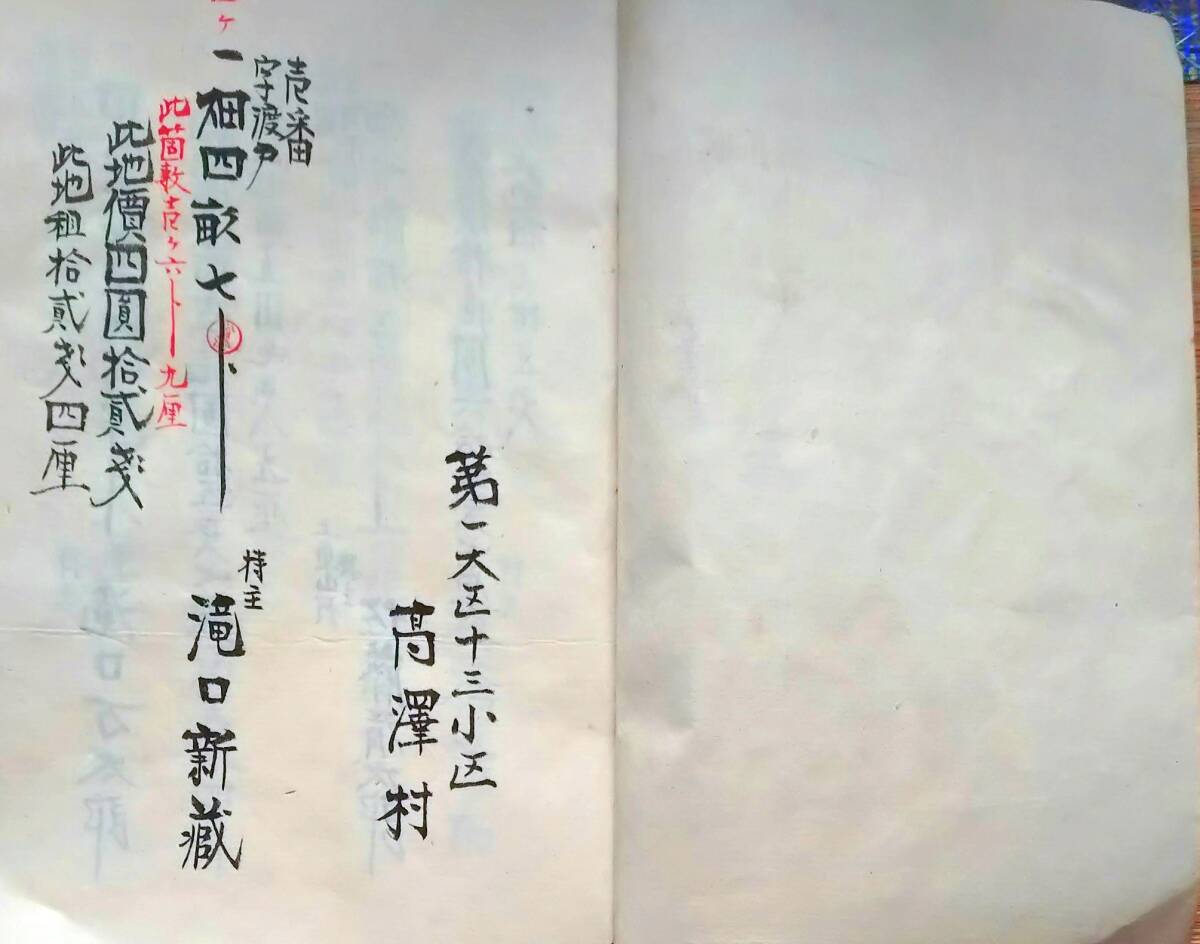 第一大区十三小区
高澤村
壱番
字渡
一畑四畝七ト
持主
滝口新蔵
此箇数壱ヶ六ト九厘
此地價四圓拾貳戔
此地租拾貳戔四厘